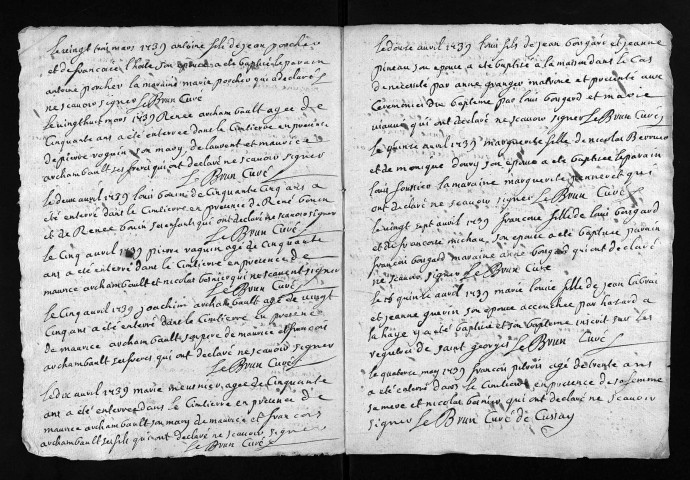 le vingt trois mars 1739 antoine fils de jean porcher
et de francoise l'hoste son epouse a ete baptisé le parain
antoine porcher la maraine marie porcher qui a declaré
ne scauoir signer Le Brun Curé
le vingt huit mars 1739 Renée archambault agee de
Cinquante ans a eté enterrée dans le Cimtierre en presence
de pierre voguin son mary de laurent et maurice
archambault ses freres qui ont declaré ne scauoir signer
Le Brun Curé
le deux auril 1739 louis bouin de Cinquante Cinq ans a
eté enterré dans le Cimtierre en presence de René bouin
et de Renee bouin ses enfants qui ont declaré ne scauoir signer
Le Brun Curé
le Cinq auril 1739 pierre vaguin agé de Cinquante
ans a eté enterré dans le Cimtierre en presence de
maurice archambault et nicolas qui ne scauent signer
Le Brun Curé
le Cinq auril 1739 joachim archambault agé de vingt
Cinq ans a eté enterré dans le Cimtierre en presence
de maurice archambault son pere de maurice et francois
archambault ses freres qui ont declaré ne scauoir signer
Le Brun Curé
le dix auril 1739 marie meusnier agee de Cinquante
ans a eté enterree dans le Cimtierre en presence de
maurice archambault son mary de maurice et francois
archambault ses fils qui ont declaré ne scauoir signer
Le Brun Curé
le douse auril 1739 louis fils de jean bougard et jeanne
pineau son epouse a eté baptisé a la maison dans le Cas
de necessité par anne granger matrone et presenté aux
Ceremonies du bapteme par louis bougard et marie
qui ont declaré ne scauoir signer Le Brun Curé
le quinse auril 1739 marguerite fille de nicolas
et de monique doury son epouse a eté baptisee le parain
louis la maraine marguerite qui
ont declaré ne scauoir signer Le Brun Curé
le vingt sept auril 1739 francoise fille de louis bougard
et de francoise michau son epouse a eté baptisee parain
francois bougard maraine anne bougard qui ont declaré
ne scauoir signer Le Brun Curé
le quinse auril 1739 marie louise fille de jean
et jeanne guerin son epouse accouchee par hasard a
la haye y a eté baptisee et son bapteme inscrit sur les
registres de saint georges Le Brun Curé
le quatorse may 1739 francois agé de trente ans
a eté enterré dans le Cimtierre en presence de sa femme
sa mere et nicolas qui ont declaré ne scauoir
signer Le Brun Curé de Cussay